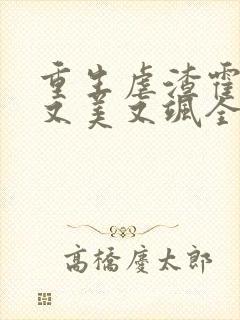 重生虐渣霍
又美又飒全
高橋慶太郎